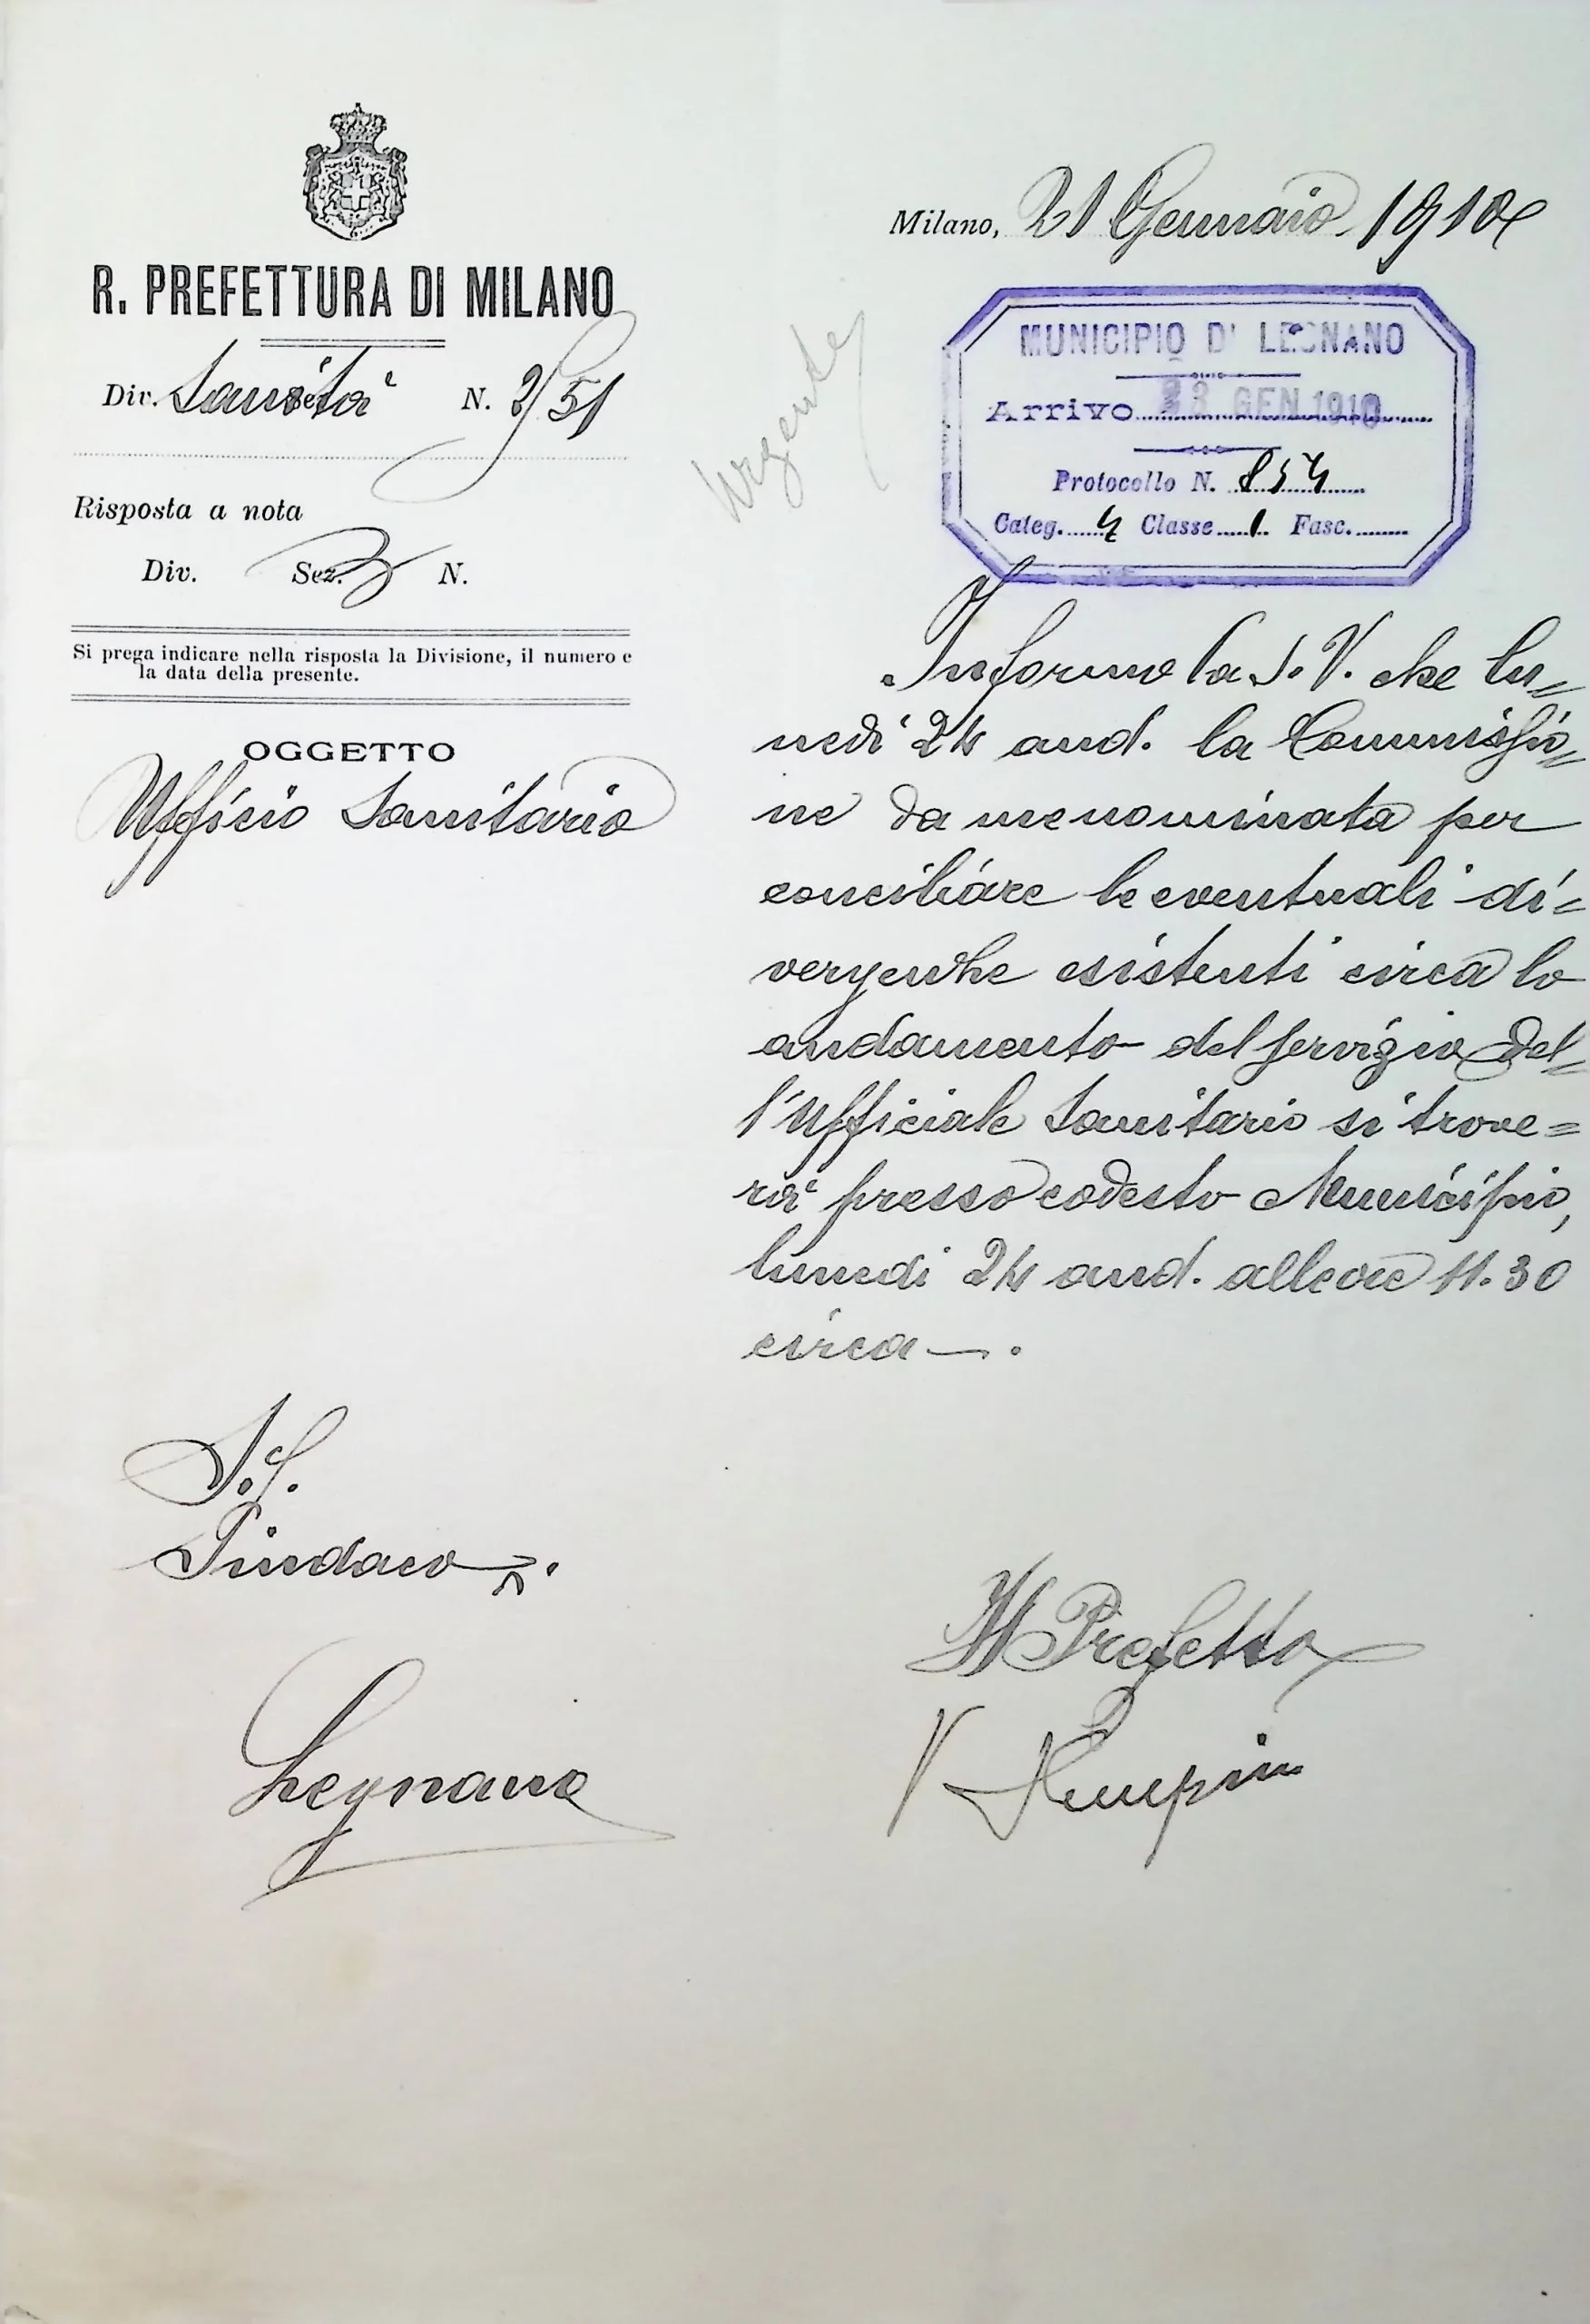 R. PREFETTURA DI MILANO
Div. Sanità N. 251
Risposta a nota
Div. Sez. N.
Si prega indicare nella risposta la Divisione, il numero e
la data della presente.
OGGETTO
Ufficio Sanitario
S. S.
Sindaco
Legnano
Milano, 21 Gennaio 1910
Urgente
MUNICIPIO D' LEGNANO
Arrivo 23 GEN 1910
Protocollo N. 854
Categ. 4 Classe 1 Fasc.
Informo la S. V. che lu=
nedì 24 and. la Commissio=
ne da me nominata per
conciliare le eventuali di=
vergenze esistenti circa lo
andamento del servizio del=
l'Ufficiale Sanitario si trove=
rà presso codesto Municipio,
lunedi 24 and. alle ore 11.30
circa.
Il Prefetto